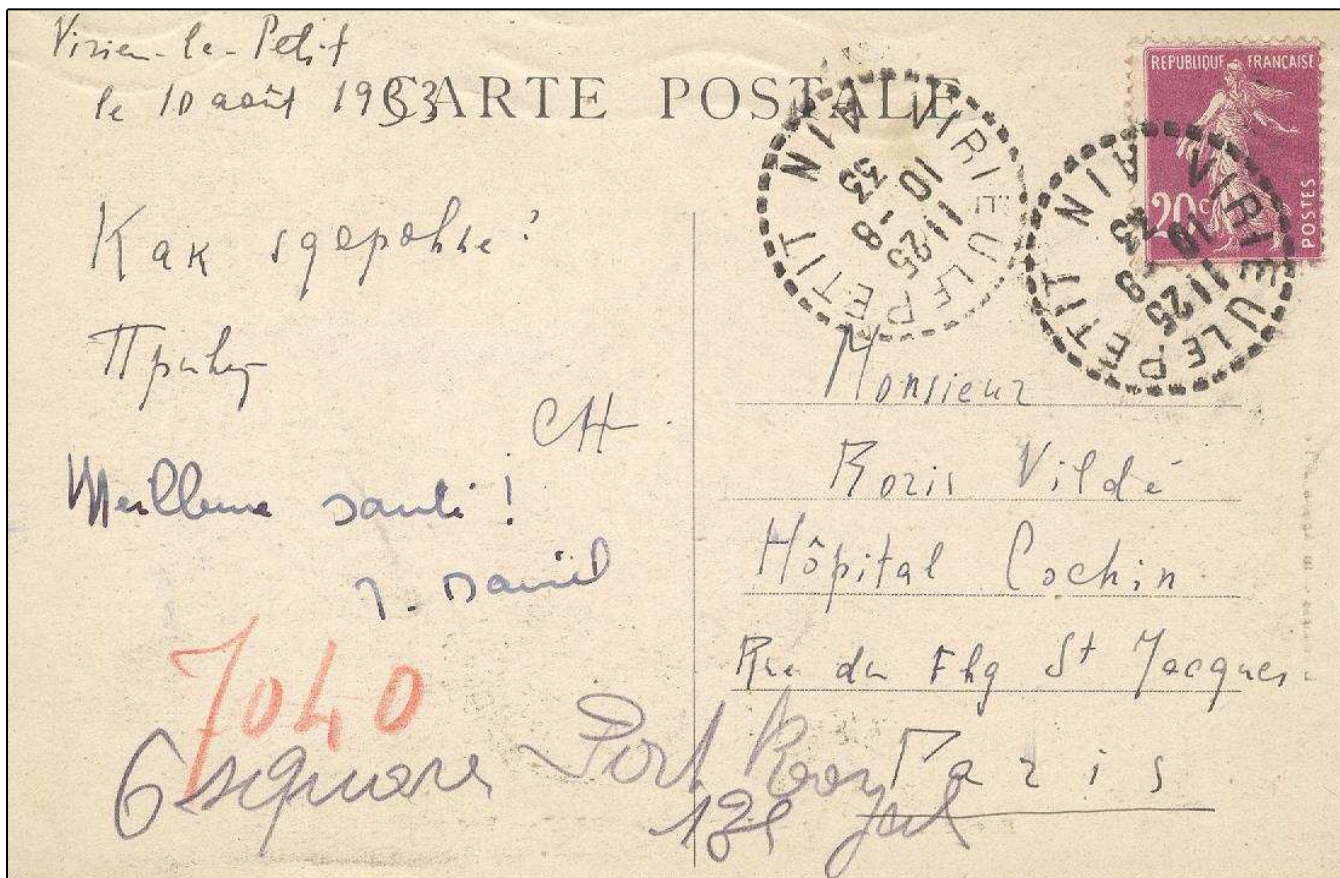 Virieu-le-Petit
le 10 août 1933
CARTE POSTALE
REPUBLIQUE FRANÇAISE
20c
POSTES
VIRIEU LE PETIT AIN
11 25
10 - 8
33
VIRIEU LE PETIT AIN
11 25
10 - 8
33
Как здоровье?
Привет
Meilleure santé !
J. Daniel
7040
Monsieur
Boris Vildé
Hôpital Cochin
Rue du Fbg St Jacques
Paris
6 square Port Royal
13e